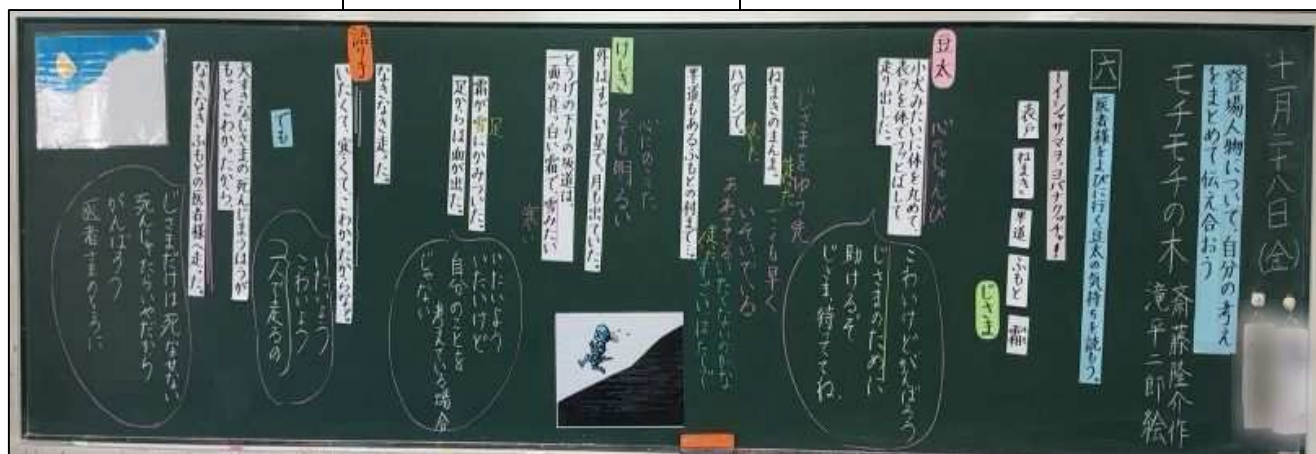 十一月二十八日(金)
登場人物について、自分の考え
をまとめて伝え合おう
モチモチの木 斎藤隆介作
滝平二郎絵
六 医者様をよびに行く豆太の気持ちを読もう。
ーイシャサマヲ、ヨバナクッチャ!
表戸 ねまき 半道 ふもと 霜
じさま
豆太
心のじゅんび
小犬みたいに体を丸めて、
表戸を体でフッとばして
走り出した。
こわいけどがんばろう
じさまのために
助けるぞ
じさま、待っててね。
ねまきのまんま。
ハダシで。
半道もあるふもとの村まで…。
一こも早く
いそいでいる
けしき
とても明るい
外はすごい星で、月も出ていた。
とうげの下りの坂道は、
一面の真っ白い霜で、雪みたい
寒い
霜が足にかみついた。
足からは血が出た。
いたいよう
いたいけど
自分のことを
考えている場合
じゃない
語り手
なきなき走った。
いたくて、寒くて、こわかったからなぁ。
いたいよう
こわいよう
でも
大すきなじさまの死んじまうほうが
もっとこわかったから、
なきなきふもとの医者様へ走った。
じさまだけは死なせない
死んじゃったらいやだから
がんばろう